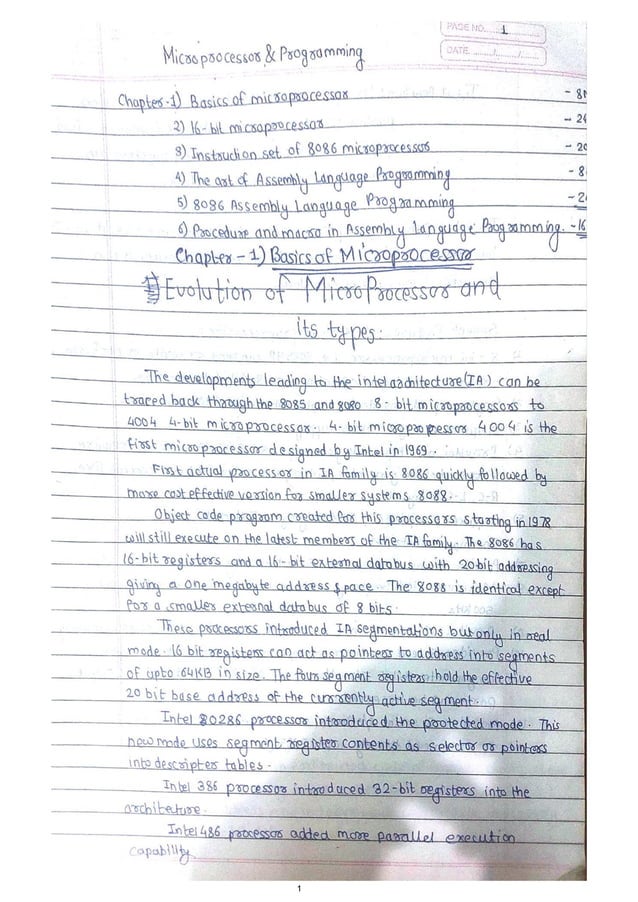 PAGE NO. 1
DATE
Microprocessor & Programming
Chapter-1) Basics of microprocessor
2) 16-bit microprocessor
3) Instruction set of 8086 microprocessor - 20
4) The art of Assembly Language Programming - 8
5) 8086 Assembly Language Programming
6) Procedure and macro in Assembly Language Programming. -16
Chapter - 1) Basics of Microprocessor
1) Evolution of MicroProcessor and
its types:
The developments leading to the intel architecture (IA) can be
traced back through the 8085 and 8080 8-bit microprocessors to
4004 4-bit microprocessor. 4-bit microprocessor 4004 is the
first microprocessor designed by Intel in 1969.
First actual processor in IA family is 8086 quickly followed by
more cost effective version for smaller systems 8088.
Object code program created for this processors starting in 1978
will still execute on the latest members of the IA family. The 8086 has
16-bit registers and a 16-bit external databus with 20bit addressing
giving a one megabyte address space. The 8088 is identical except
for a smaller external databus of 8 bits.
These processors introduced IA segmentations but only in real
mode. 16 bit registers can act as pointers to address into segments
of upto 64KB in size. The four segment registers hold the effective
20 bit base address of the currently active segment.
Intel 80286 processor introduced the protected mode. This
new mode uses segment register contents as selector or pointers
into descripter tables.
Intel 386 processor introduced 32-bit registers into the
architeture.
Intel 486 processor added more parallel execution
capability
1